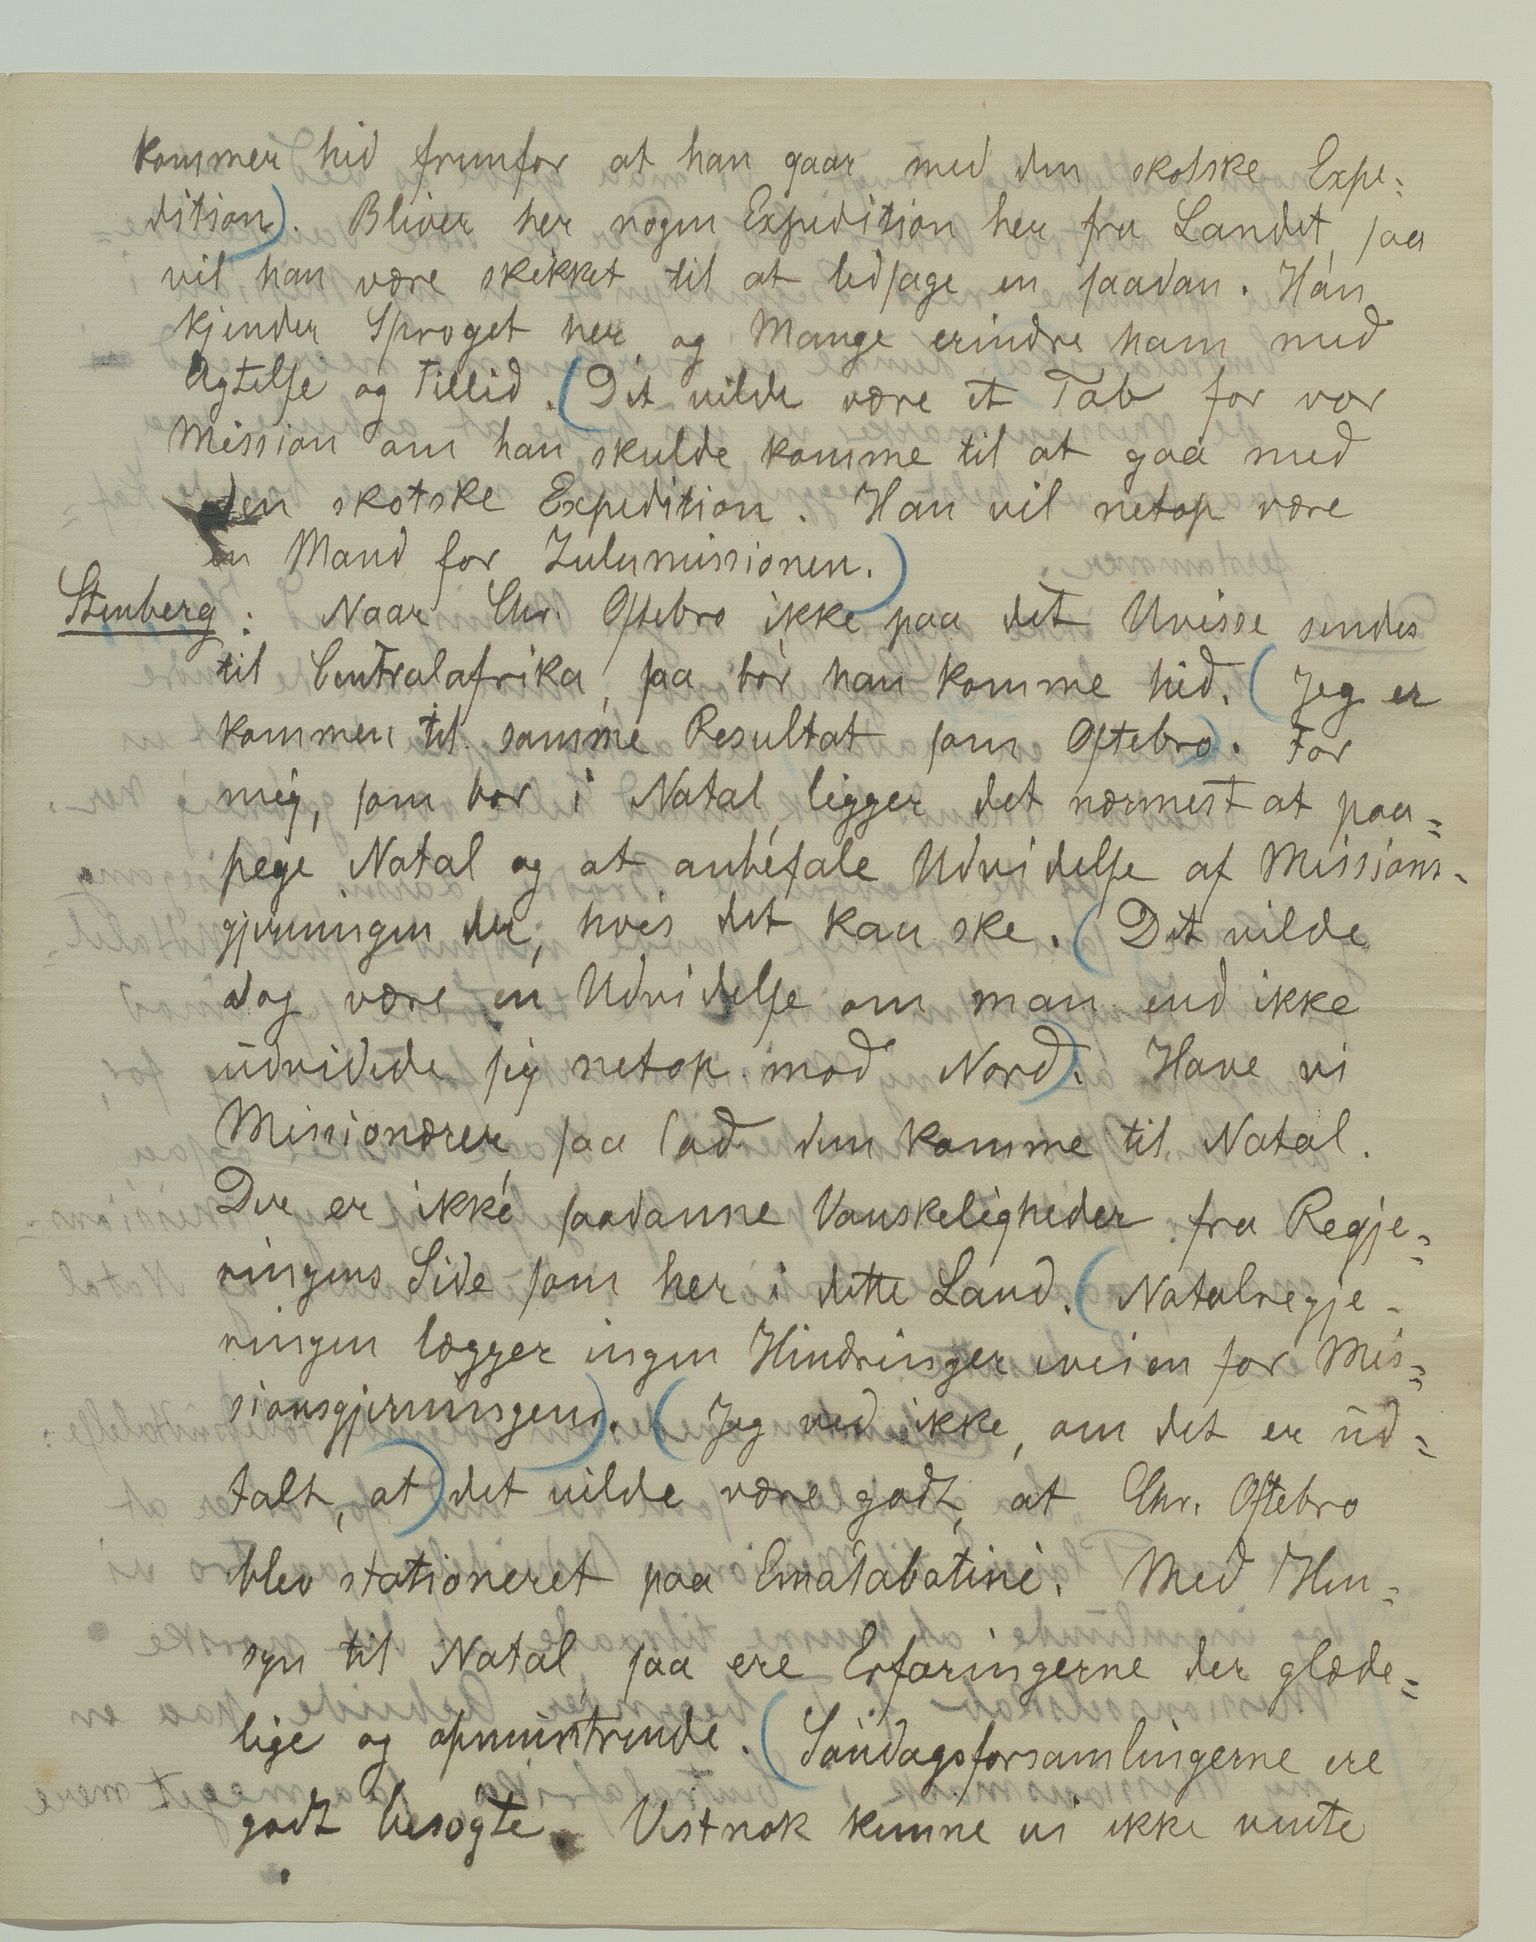 kommer hid fremfor at han gaar med den skotske Expe-
dition). Bliver her nogen Expedition her fra Landet, saa
vil han være skikket til at ledsage en saadan. Han
kjender Sproget her, og Mange erindre ham med
Agtelse og Tillid. (Det vilde være et Tab for vor
Mission om han skulde komme til at gaa med
den skotske Expedition. Han vil netop være
en Mand for Zulumissionen.)
Stenberg: Naar Chr. Oftebro ikke paa det Uvisse sendes
til Centralafrika, saa bör han komme hid. (Jeg er
kommen til samme Resultat som Oftebro). For
mig, som bor i Natal, ligger det nærmest at paa-
pege Natal og at anbefale Udvidelse af Missions-
gjerningen der, hvis det kan ske. (Det vilde
dog være en Udvidelse om man end ikke
udvidede sig netop mod Nord). Have vi
Missionærer saa lad dem komme til Natal.
Der er ikke saadanne Vanskeligheder fra Regje-
ringens Side som her i dette Land. (Natalregje-
ringen lægger ingen Hindringer iveien for Mis-
sionsgjerningen). (Jeg ved ikke, om det er ud-
talt, at) det vilde være godt, at Chr. Oftebro
blev stationeret paa Emahlabatini. Med Hen-
syn til Natal, saa ere Erfaringerne der glæde-
lige og opmuntrende. (Söndagsforsamlingerne ere
godt besögte. Vistnok kunne vi ikke vente